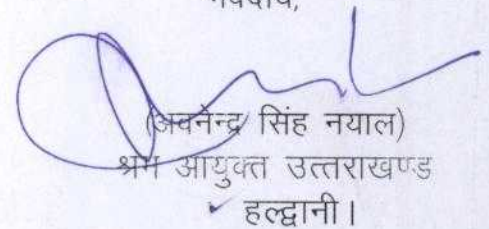 भवदीय,
(अवनेन्द्र सिंह नयाल)
श्रम आयुक्त उत्तराखण्ड
हल्द्वानी।